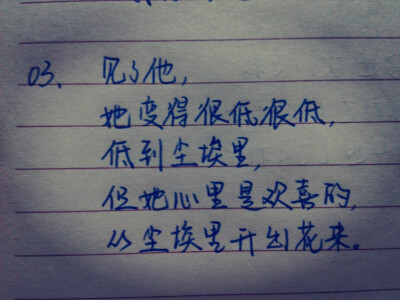 03、见了他，
她变得很低很低，
低到尘埃里，
但她心里是欢喜的，
从尘埃里开出花来。